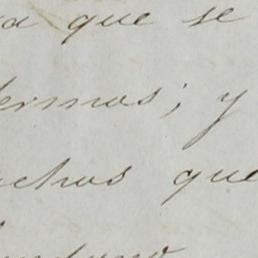 que se
ermos; y
chos que